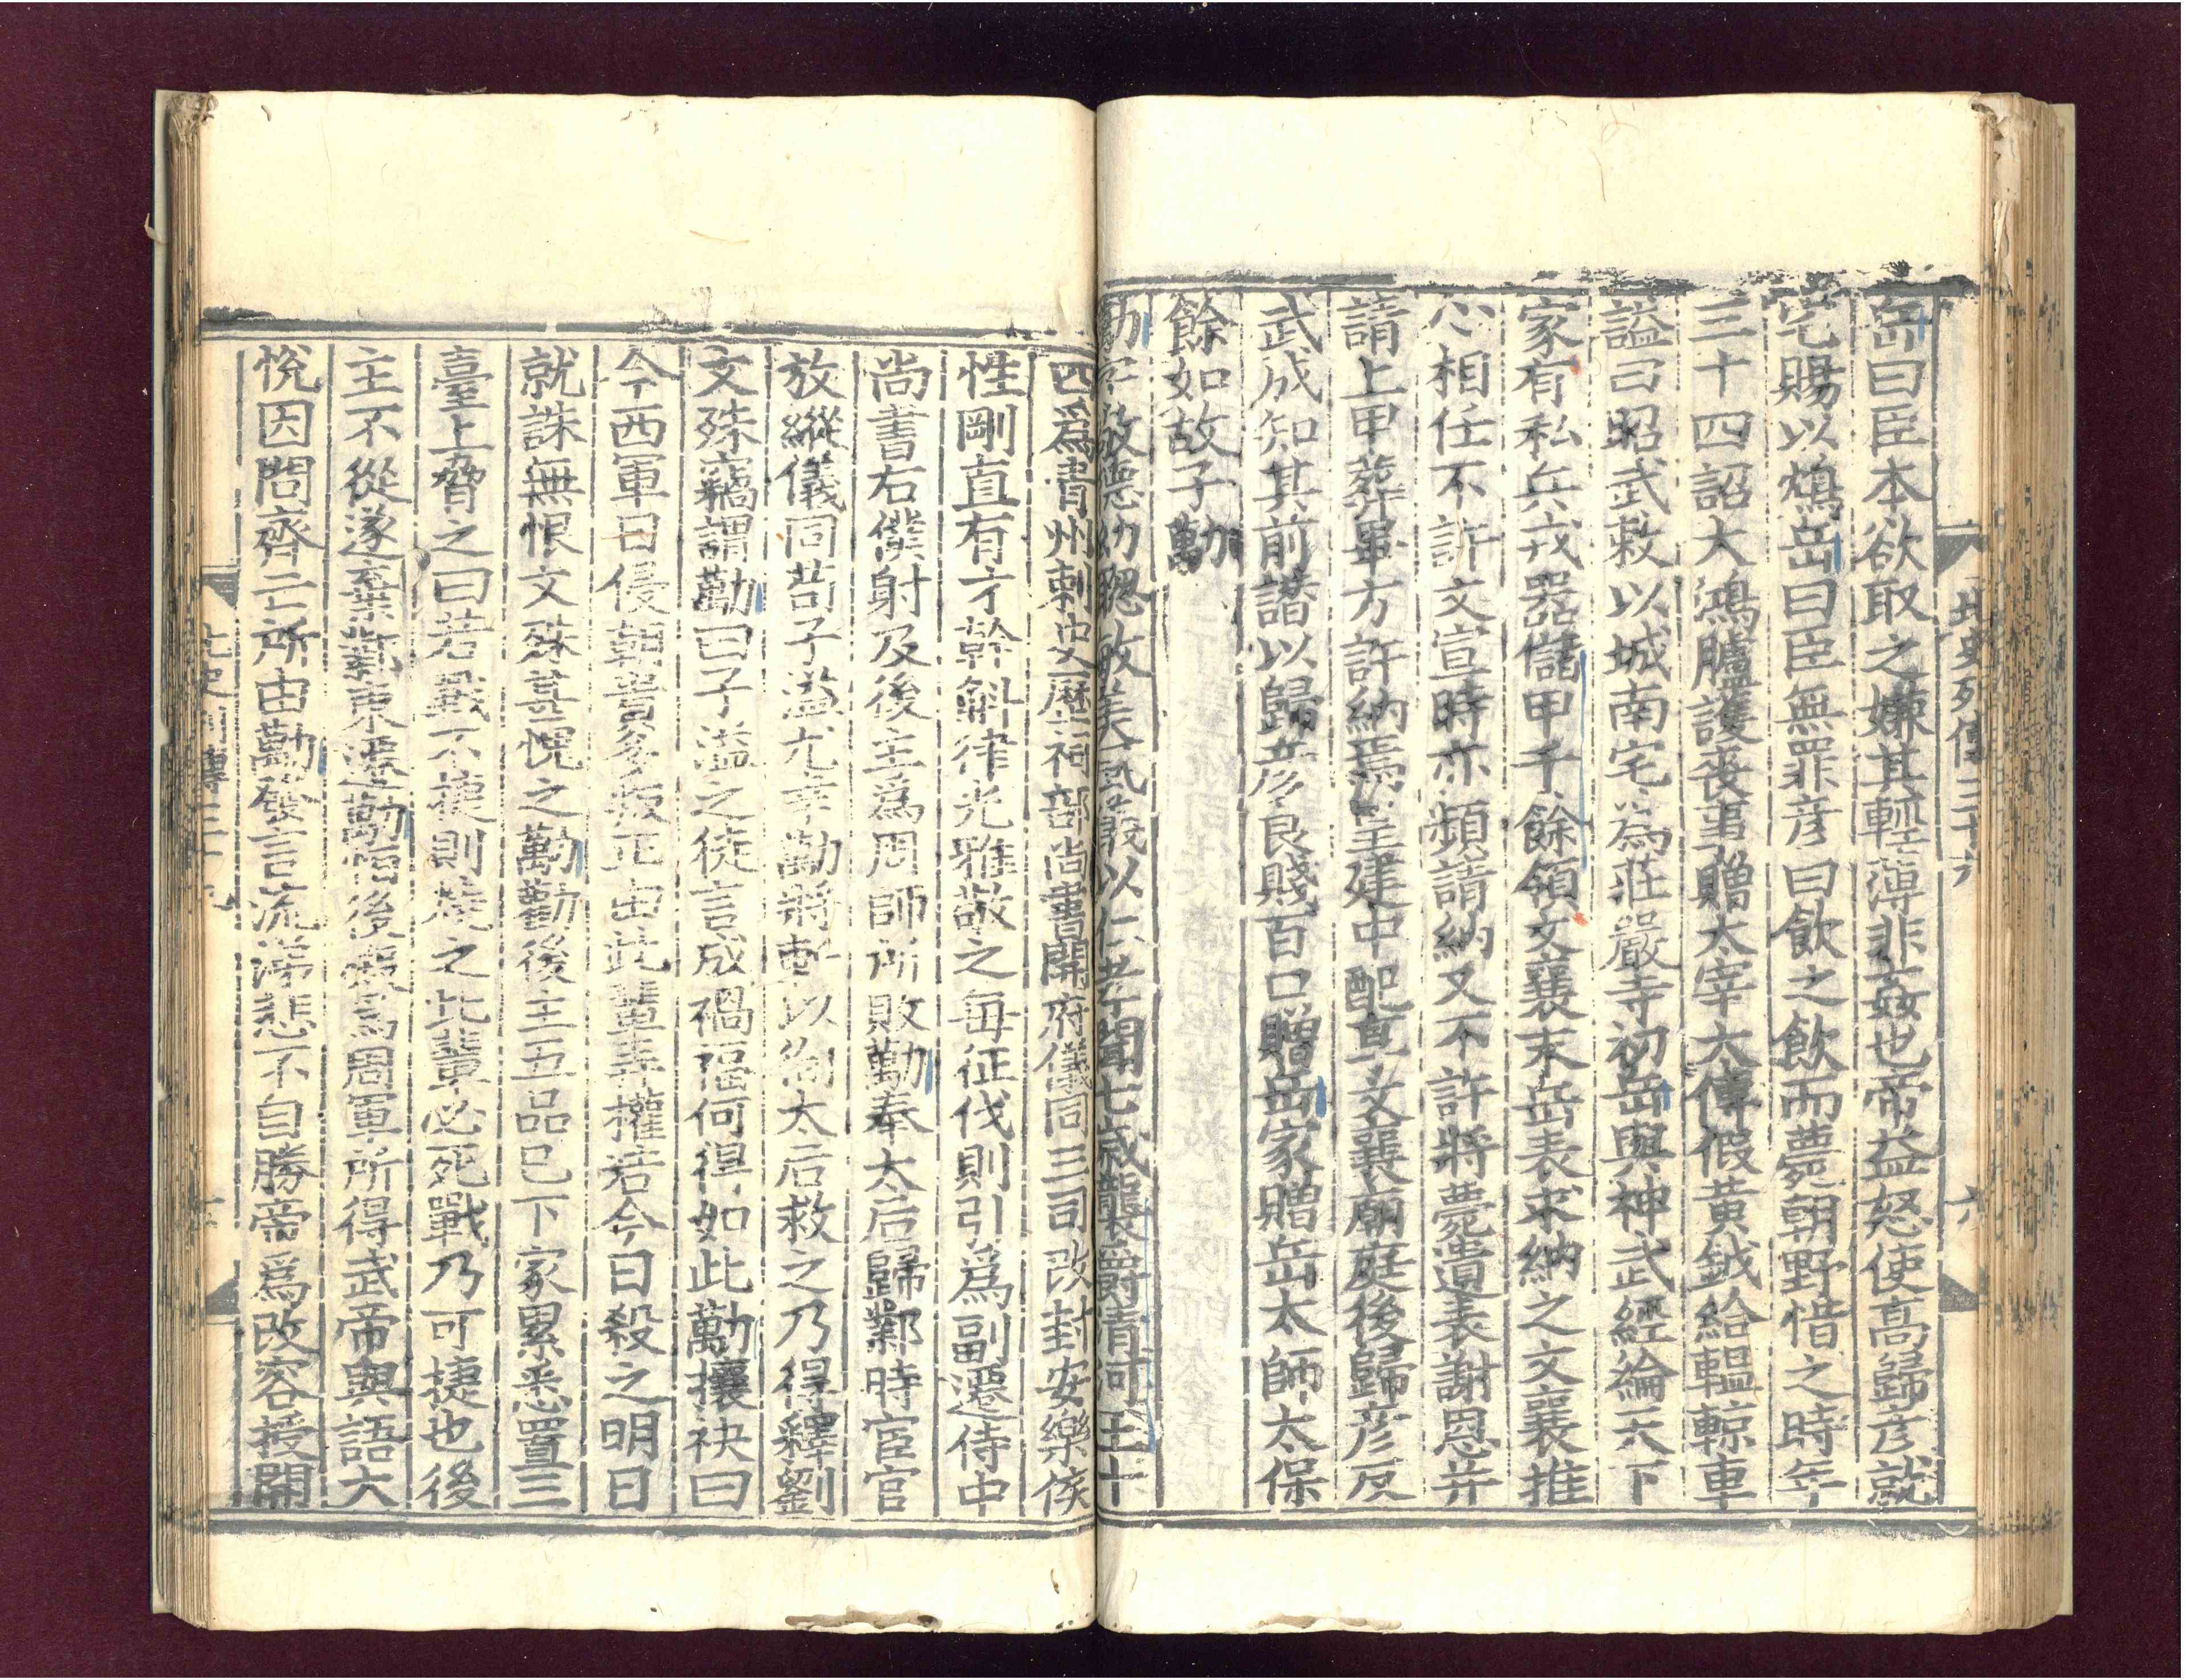 岳曰臣本欲取之嫌其輕薄非姦也帝益怒使高歸彥就
宅賜以鴆岳曰臣無罪彥曰飲之飲而薨朝野惜之時年
三十四詔大鴻臚護喪事贈太宰太傅假黃鉞給轀輬車
謚曰昭武敕以城南宅爲莊嚴寺初岳與神武經綸天下
家有私兵戎器儲甲千餘領文襄末岳表求納之文襄推
心相任不許文宣時亦頻請納又不許將薨遺表謝恩并
請上甲葬畢方許納焉皇建中配享文襄廟庭後歸彥反
武成知其前譖以歸彥良賤百口贈岳家贈岳太師太保
餘如故子勱
勱字敬德幼聰敏美風儀以仁孝聞七歲襲爵清河王十
四爲青州刺史歷祠部尚書開府儀同三司改封安樂侯
性剛直有才幹斛律光雅敬之每征伐則引爲副遷侍中
尚書右僕射及後主爲周師所敗勱奉太后歸鄴時宦官
放縱儀同苟子溢尤幸勱將斬以徇太后救之乃得釋劉
文殊竊謂勱曰子溢之徒言成禍福何得如此勱攘袂曰
今西軍日侵朝貴多叛正由此輩弄權若今日殺之明日
就誅無恨文殊甚愧之勱勸後主五品已下家累悉置三
臺上脅之曰若戰不捷則燒之此輩必死戰乃可捷也後
主不從遂棄鄴東遷勱恒後殿爲周軍所得武帝與語大
悅因問齊亡所由勱發言流涕悲不自勝帝爲改容授開
北史列傳三十六
六